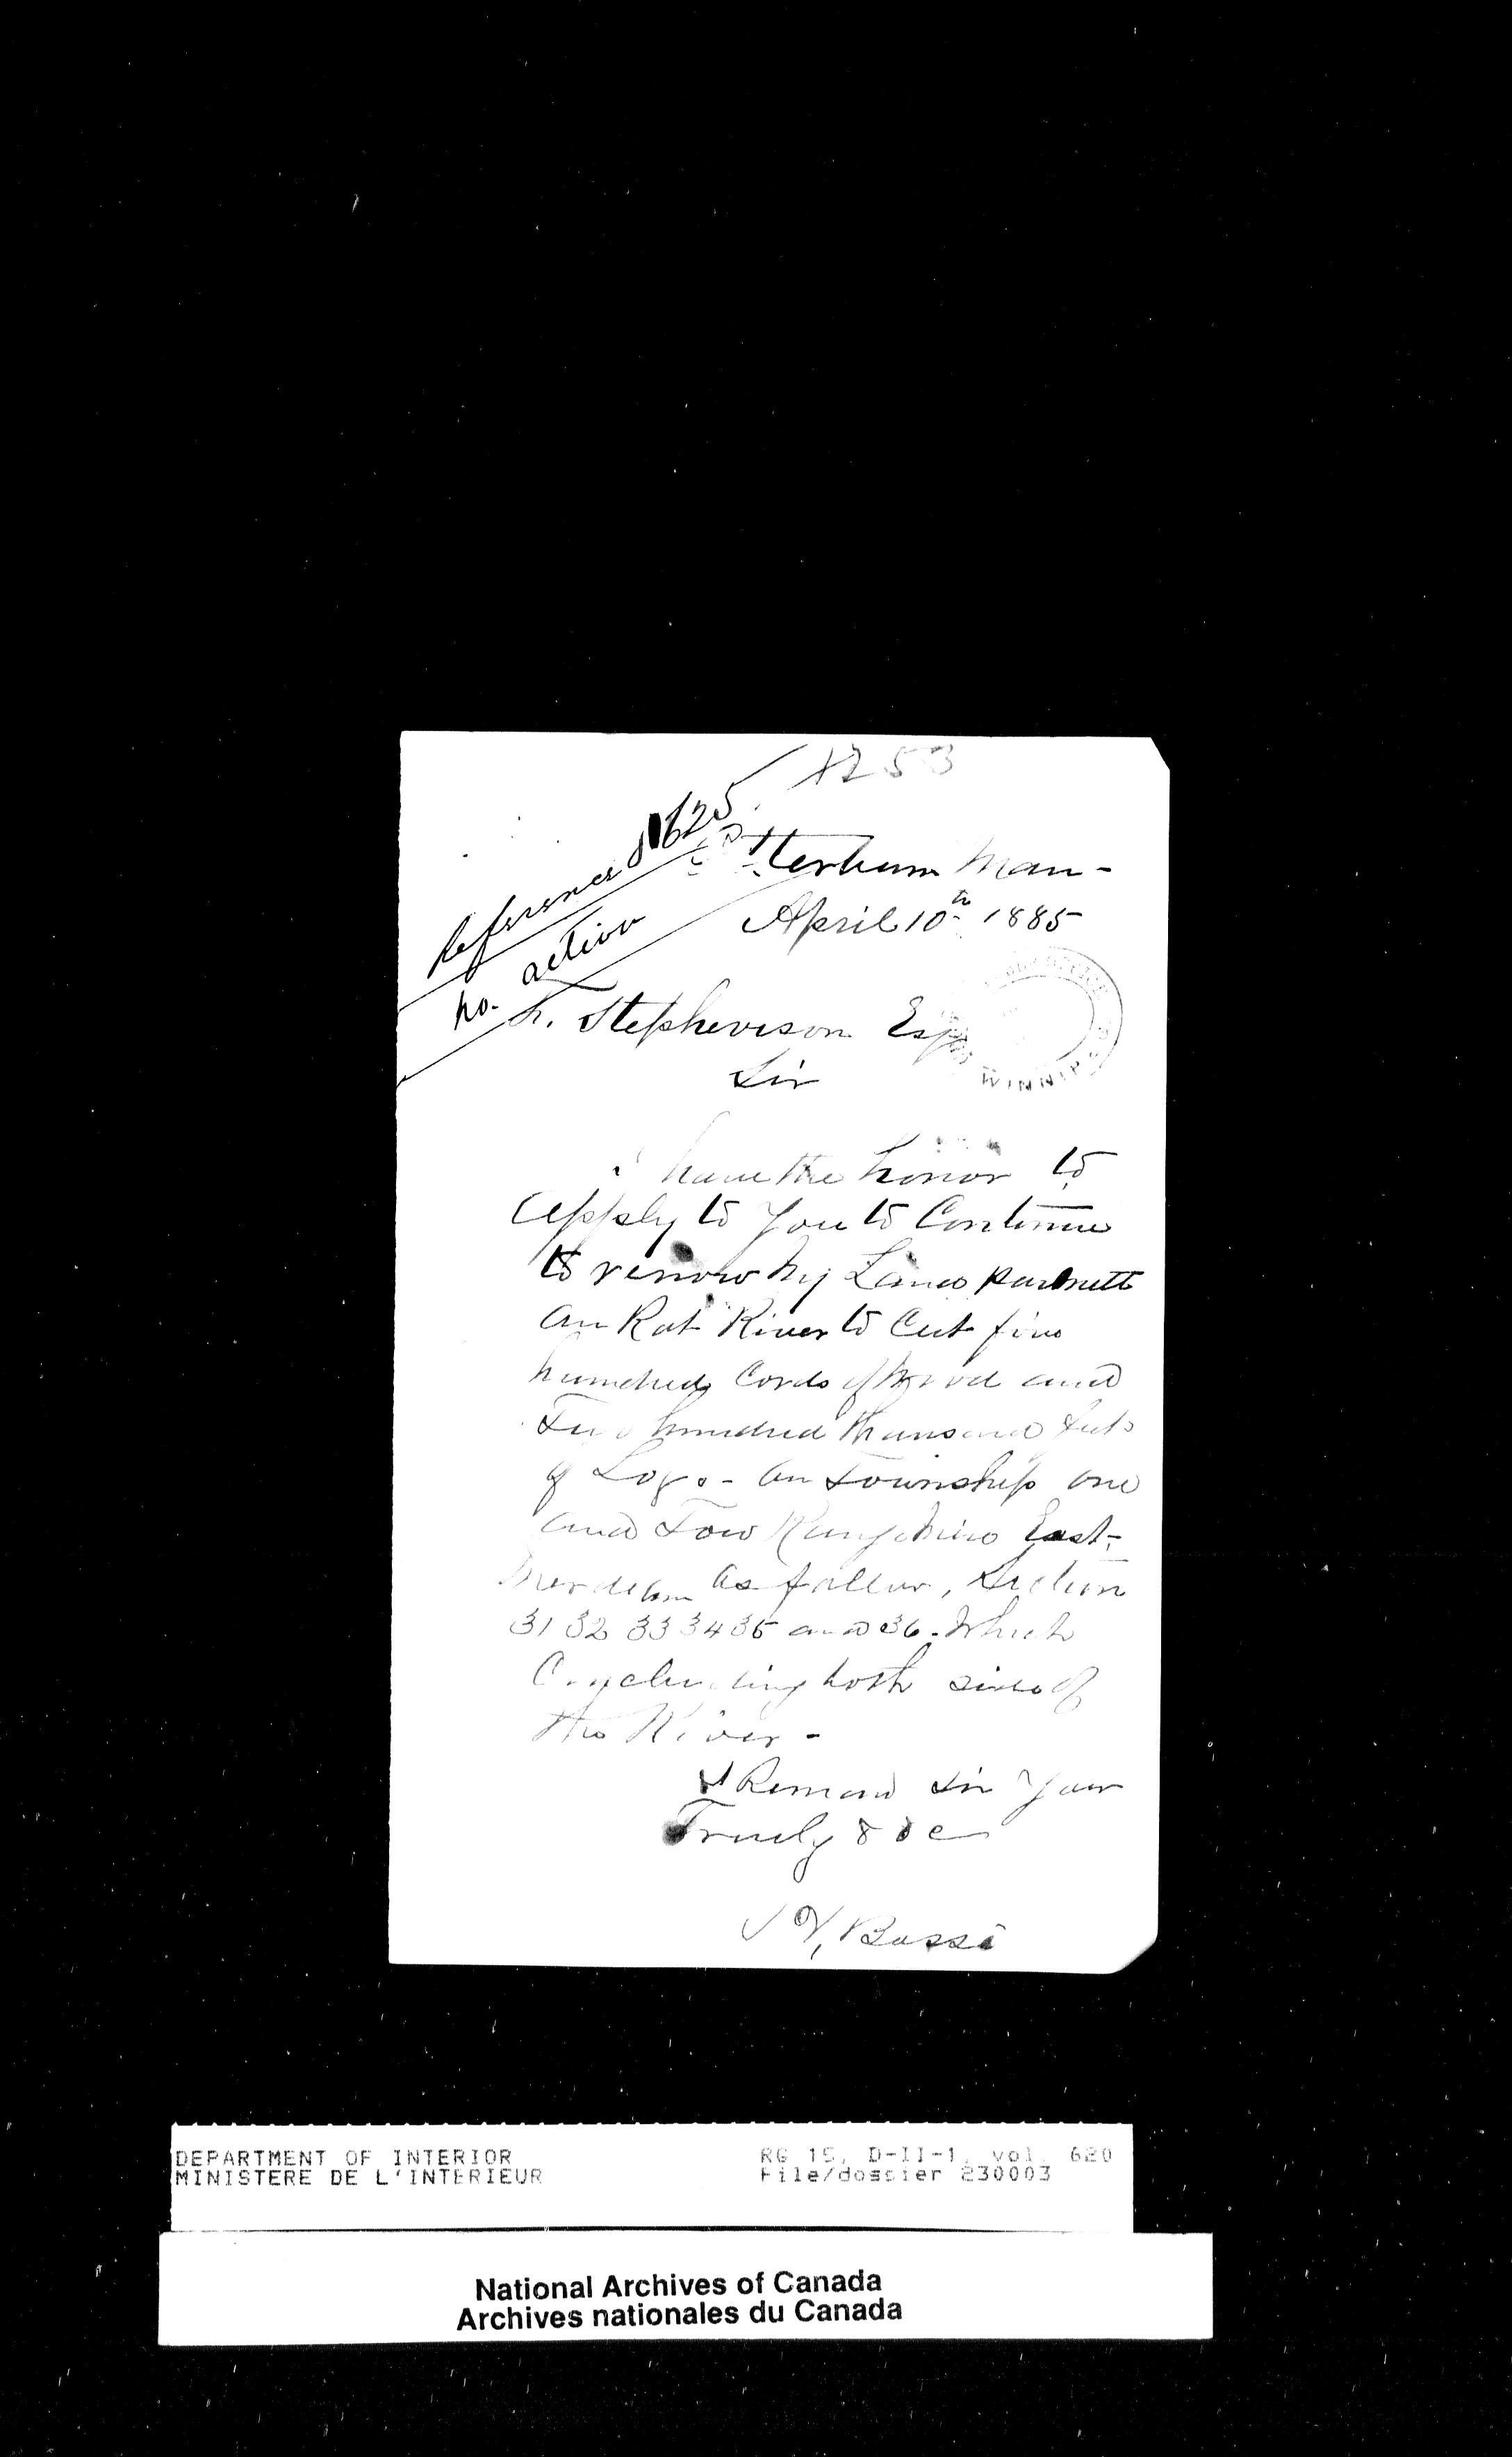 1253
Reference 11625
no action
Otterburn Man-
April 10th 1885
Stephenson Esq
WINNIP
Sir
I have the honor to
Apply to You to Continue
to renow My Lance
an Rat River to Cut five
hundred Cords of Wood and
Two hundred thousand feets
of Logs - an Township one
and Tow Range East-
Merdian as follow, Section
31 32 33 34 35 and 36. Which
both sides of
the River -
I Remain Sir Your
Truely &&c
J Y, Bassé
DEPARTMENT OF INTERIOR
MINISTERE DE L'INTERIEUR
RG 15, D-II-1, vol 620
File/dossier 230003
National Archives of Canada
Archives nationales du Canada